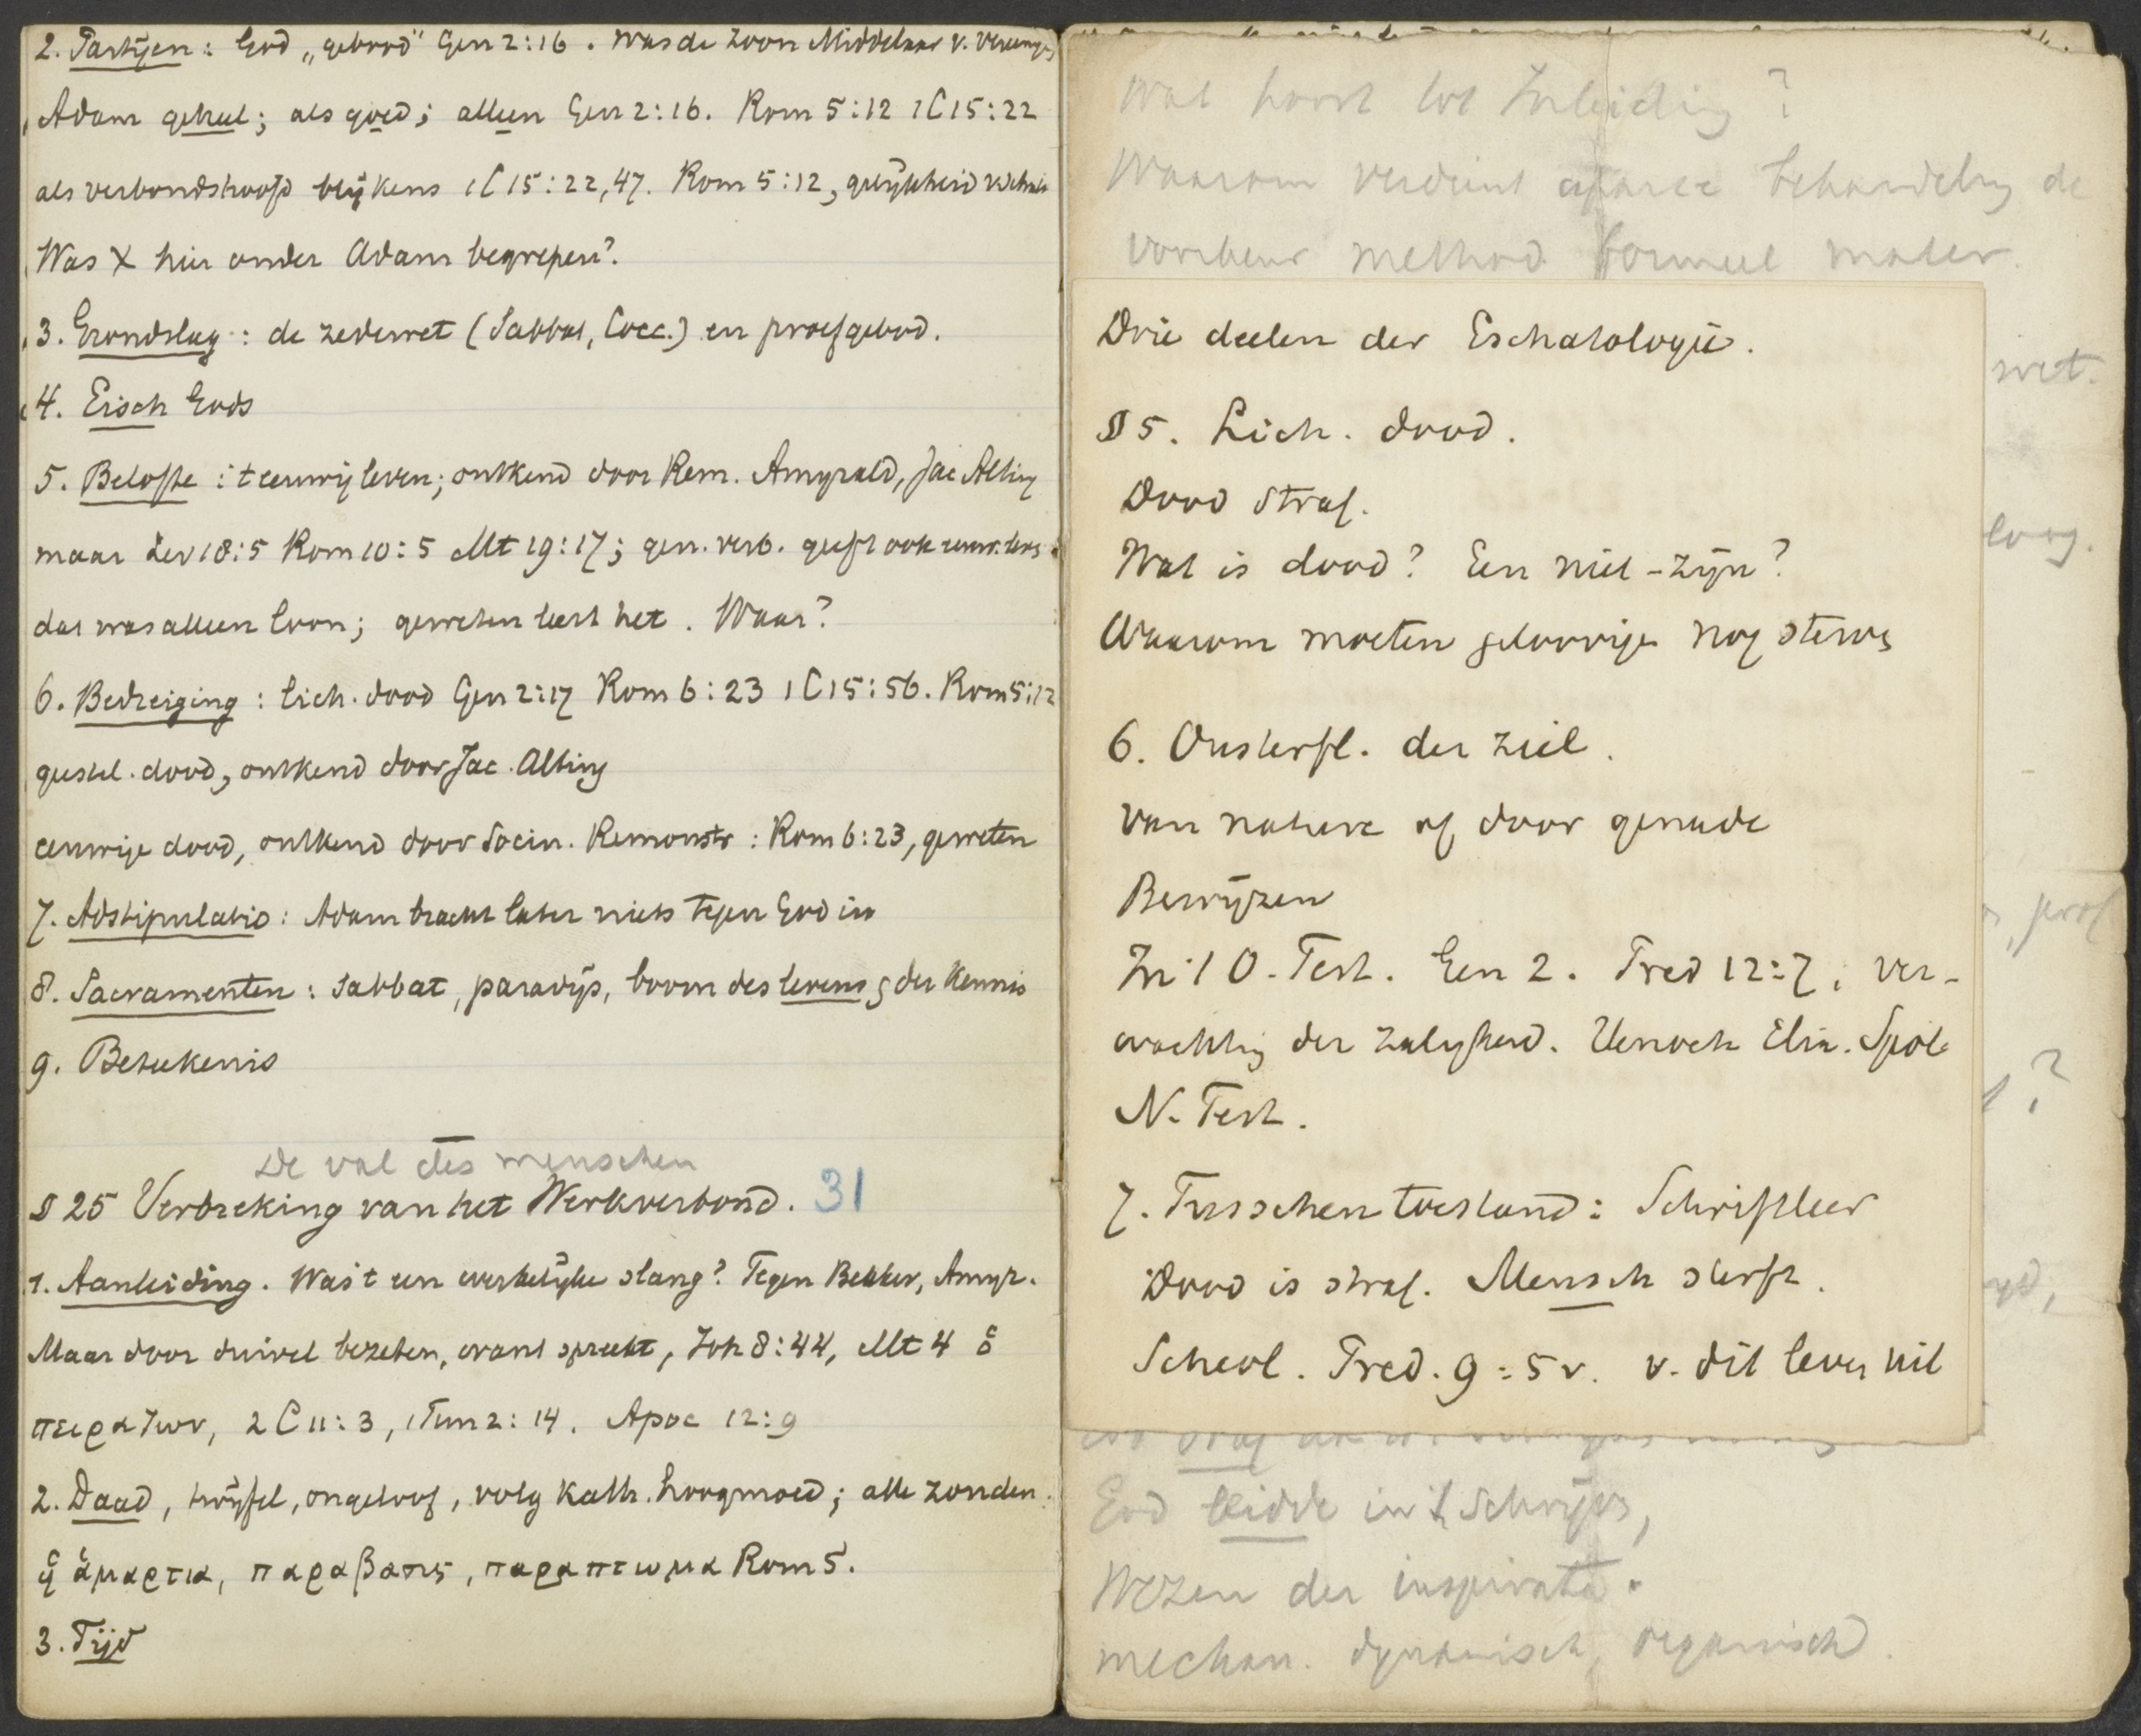 2. Partijen: God „gebood" Gen 2:16. Was de Zoon Middelaar v. vereenig
Adam geheel; als goed; alleen Gen 2:16. Rom 5:12 1C15:22
als verbondshoofd blijkens 1C15:22,47. Rom 5:12, gelijkheid
Was X hier onder Adam begrepen?
3. Grondslag: de zedewet (Sabbat, Cocc.) en proefgebod.
4. Eisch Gods
5. Belofte: 't eeuwig leven; ontkend door Rem. Amyrald, Jac Alting
maar Lev 18:5 Rom 10:5 Mt 19:17; gen. verb. geeft ook eeuw. lev.
dat was alleen loon; geweten leert het. Waar?
6. Bedreiging: lich. dood Gen 2:17 Rom 6:23 1C15:56. Rom 5:12
geestel. dood, ontkend door Jac. Alting
eeuwige dood, ontkend door Socin. Remonstr: Rom 6:23, geweten
7. Adstipulatio: Adam bracht later niets tegen God in
8. Sacramenten: sabbat, paradijs, boom des levens, der kennis
9. Beteekenis
De val des menschen
§ 25 Verbreking van het Werkverbond. 31
1. Aanleiding. Was 't een werkelijke slang? Tegen Bekker, Amyr.
Maar door duivel bezeten, want spreekt, Joh 8:44, Mt 4 ὁ
πειραζων, 2C11:3, 1Tim 2:14. Apoc 12:9
2. Daad, twijfel, ongeloof, volg Kath. hoogmoed; alle zonden
ἡ ἁμαρτια, παραβασις, παραπτωμα Rom 5.
3. Tijd
Wat hoort tot Inleiding?
Waarom verdient aparte behandeling de
voorkeur method formeel mater.
Drie deelen der Eschatologie.
§ 5. Lich. dood.
Dood straf.
Wat is dood? Een niet-zijn?
Waarom moeten geloovige nog sterve
6. Onsterfl. der ziel.
van nature of door genade
Bewijzen
In 't O. Test. Gen 2. Pred 12:7, ver-
wachting der zaligheid. Henoch Elia.
N. Test.
7. Tusschentoestand: Schriftleer
Dood is straf. Mensch sterft.
Scheol. Pred. 9:5v. v. dit leven uit
wet.
loog.
prof
?
God leidde in 't Schrijven,
Wezen der inspiratie.
mechan. dynamisch, organisch.